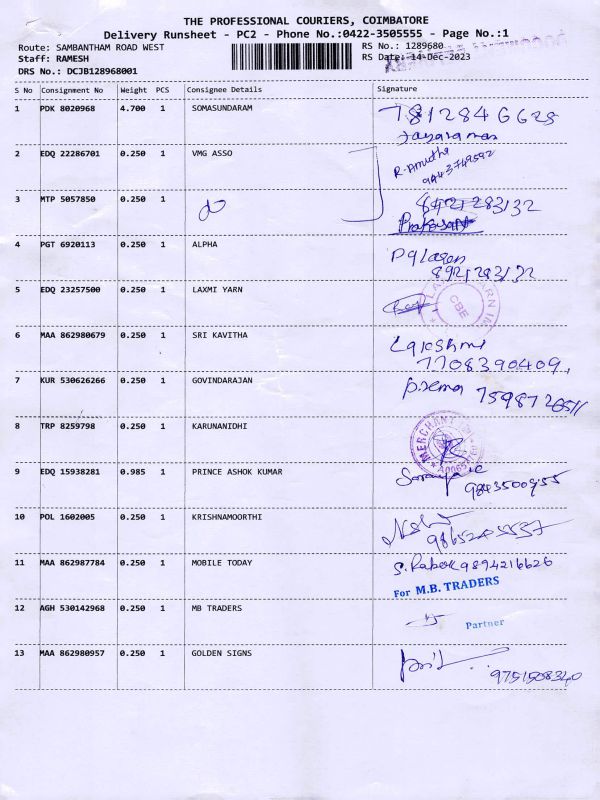 THE PROFESSIONAL COURIERS, COIMBATORE
Delivery Runsheet - PC2 - Phone No.:0422-3505555 - Page No.:1
Route: SAMBANTHAM ROAD WEST
RS No.: 1289680
Staff: RAMESH
RS Date: 14-Dec-2023
DRS No.: DCJB128968001
S No Consignment No Weight PCS Consignee Details Signature
1 PDK 8020968 4.700 1 SOMASUNDARAM 7812846628
Jayaraman
2 EDQ 22286701 0.250 1 VMG ASSO R. Amutha
9443749592
3 MTP 5057850 0.250 1 8921283132
Prakasam
4 PGT 6920113 0.250 1 ALPHA
8921283132
5 EDQ 23257500 0.250 1 LAXMI YARN
CBE
6 MAA 862980679 0.250 1 SRI KAVITHA Lakshmi
7708390409
7 KUR 530626266 0.250 1 GOVINDARAJAN Prema
8 TRP 8259798 0.250 1 KARUNANIDHI
MERCHANT
9 EDQ 15938281 0.985 1 PRINCE ASHOK KUMAR
9843500955
10 POL 1602005 0.250 1 KRISHNAMOORTHI
11 MAA 862987784 0.250 1 MOBILE TODAY 9894216626
For M.B. TRADERS
12 AGH 530142968 0.250 1 MB TRADERS
Partner
13 MAA 862980957 0.250 1 GOLDEN SIGNS
9751508340